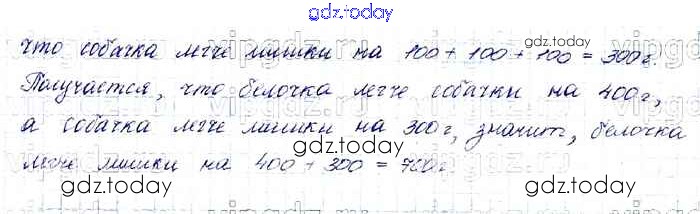 gdz.today
что собачка легче мишки на 100 + 100 + 100 = 300 г.
gdz.today
Получается, что белочка легче собачки на 400 г,
а собачка легче мишки на 300 г, значит, белочка
легче мишки на 400 + 300 = 700 г.
gdz.today
gdz.today
gdz.today